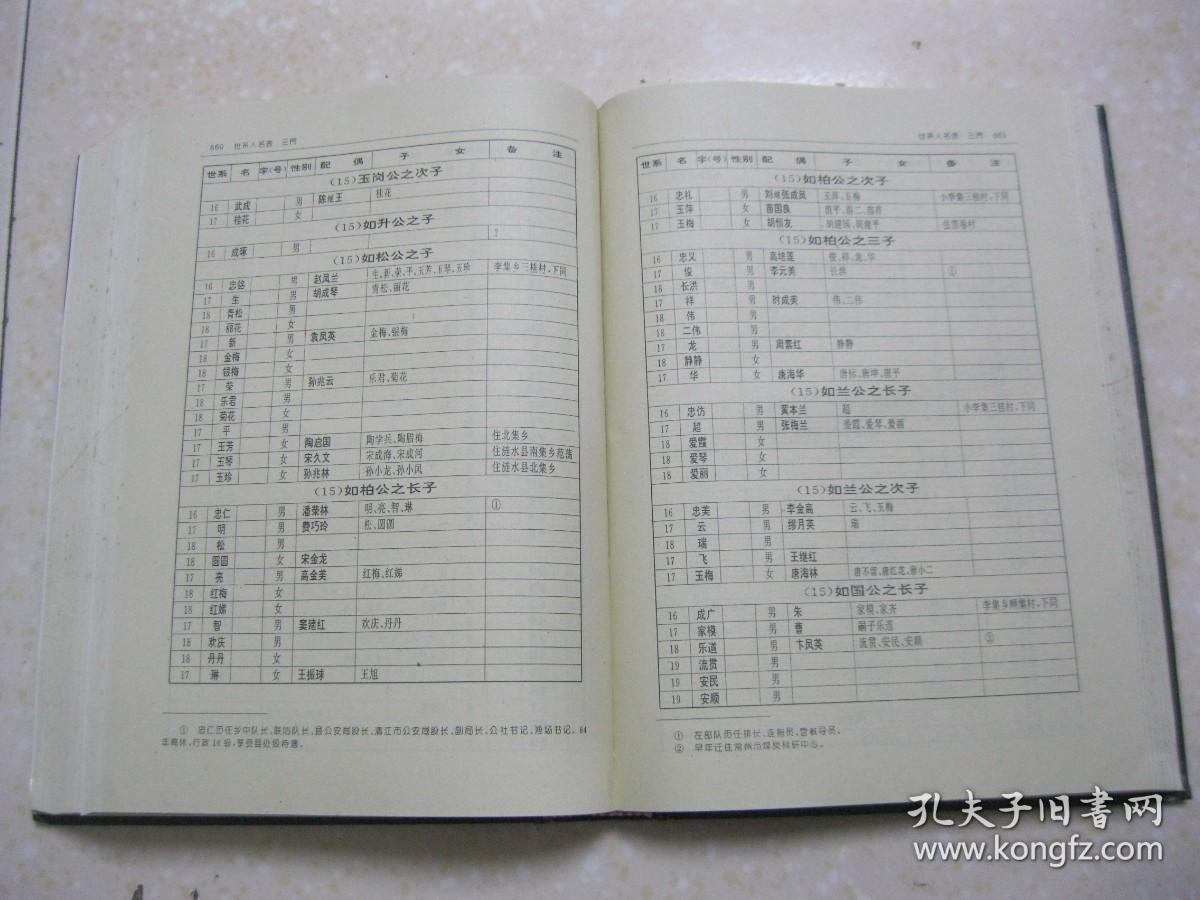 660 世系人名表 三门
世系 名 字(号) 性别 配偶 子女 备注
(15)玉岗公之次子
16 武成 男 陈继王 桂花
17 桂花 女
(15)如升公之子
16 成琢 男 ?
(15)如松公之子
16 忠铭 男 赵凤兰 生、新、荣、平、玉芳、玉琴、玉珍 李集乡三桂村,下同
17 生 男 胡成琴 青松、丽花
18 青松 男
18 丽花 女
17 新 男 袁凤英 金梅、银梅
18 金梅 女
18 银梅 女
17 荣 男 孙兆云 乐君、菊花
18 乐君 男
18 菊花 女
17 平 男
17 玉芳 女 陶启国 陶学兵、陶腊梅 住北集乡
17 玉琴 女 宋久文 宋成海、宋成河 住涟水县南集乡苑荡
17 玉珍 女 孙兆林 孙小龙、孙小凤 住涟水县北集乡
(15)如柏公之长子
16 忠仁 男 潘荣林 明、亮、智、琳 ①
17 明 男 费巧玲 松、圆圆
18 松 男
18 圆圆 女 宋金龙
17 亮 男 高金美 红梅、红娣
18 红梅 女
18 红娣 女
17 智 男 窦建红 欢庆、丹丹
18 欢庆 男
18 丹丹 女
17 琳 女 王振球 王旭
① 忠仁历任乡中队长、联防队长、县公安局股长、清江市公安局股长、副局长、公社书记、渔场书记。84
年离休,行政16级,享受县处级待遇。
世系人名表 三门 661
世系 名 字(号) 性别 配偶 子女 备注
(15)如柏公之次子
16 忠礼 男 刘继张成凤 玉萍、玉梅 小李集三桂村,下同
17 玉萍 女 苗国良 苗平、苗二、苗芹
17 玉梅 女 胡恒友
(15)如柏公之三子
16 忠义 男 高培莲 俊、祥、龙、华
17 俊 男 李元美 长洪 ①
18 长洪 男
17 祥 男 时成美 伟、二伟
18 伟 男
18 二伟 男
17 龙 男 周素红 静静
18 静静 女
17 华 女 唐海华
(15)如兰公之长子
16 忠仿 男 黄本兰 超 小李集三桂村,下同
17 超 男 张梅兰 爱霞、爱琴、爱丽
18 爱霞 女
18 爱琴 女
18 爱丽 女
(15)如兰公之次子
16 忠美 男 李金高 云、飞、玉梅
17 云 男 缪月英 瑞
18 瑞 男
17 飞 男 王继红
17 玉梅 女 唐海林
(15)如国公之长子
16 成广 男 朱 家模、家齐
17 家模 男 曹 嗣子乐道
18 乐道 男 卞凤英 流贯、安民、安顺 ②
19 流贯 男
19 安民 男
19 安顺 男
① 在部队历任排长、连指员、营教导员。
② 早年迁住常州市煤炭科研中心。
孔夫子旧书网
www.kongfz.com